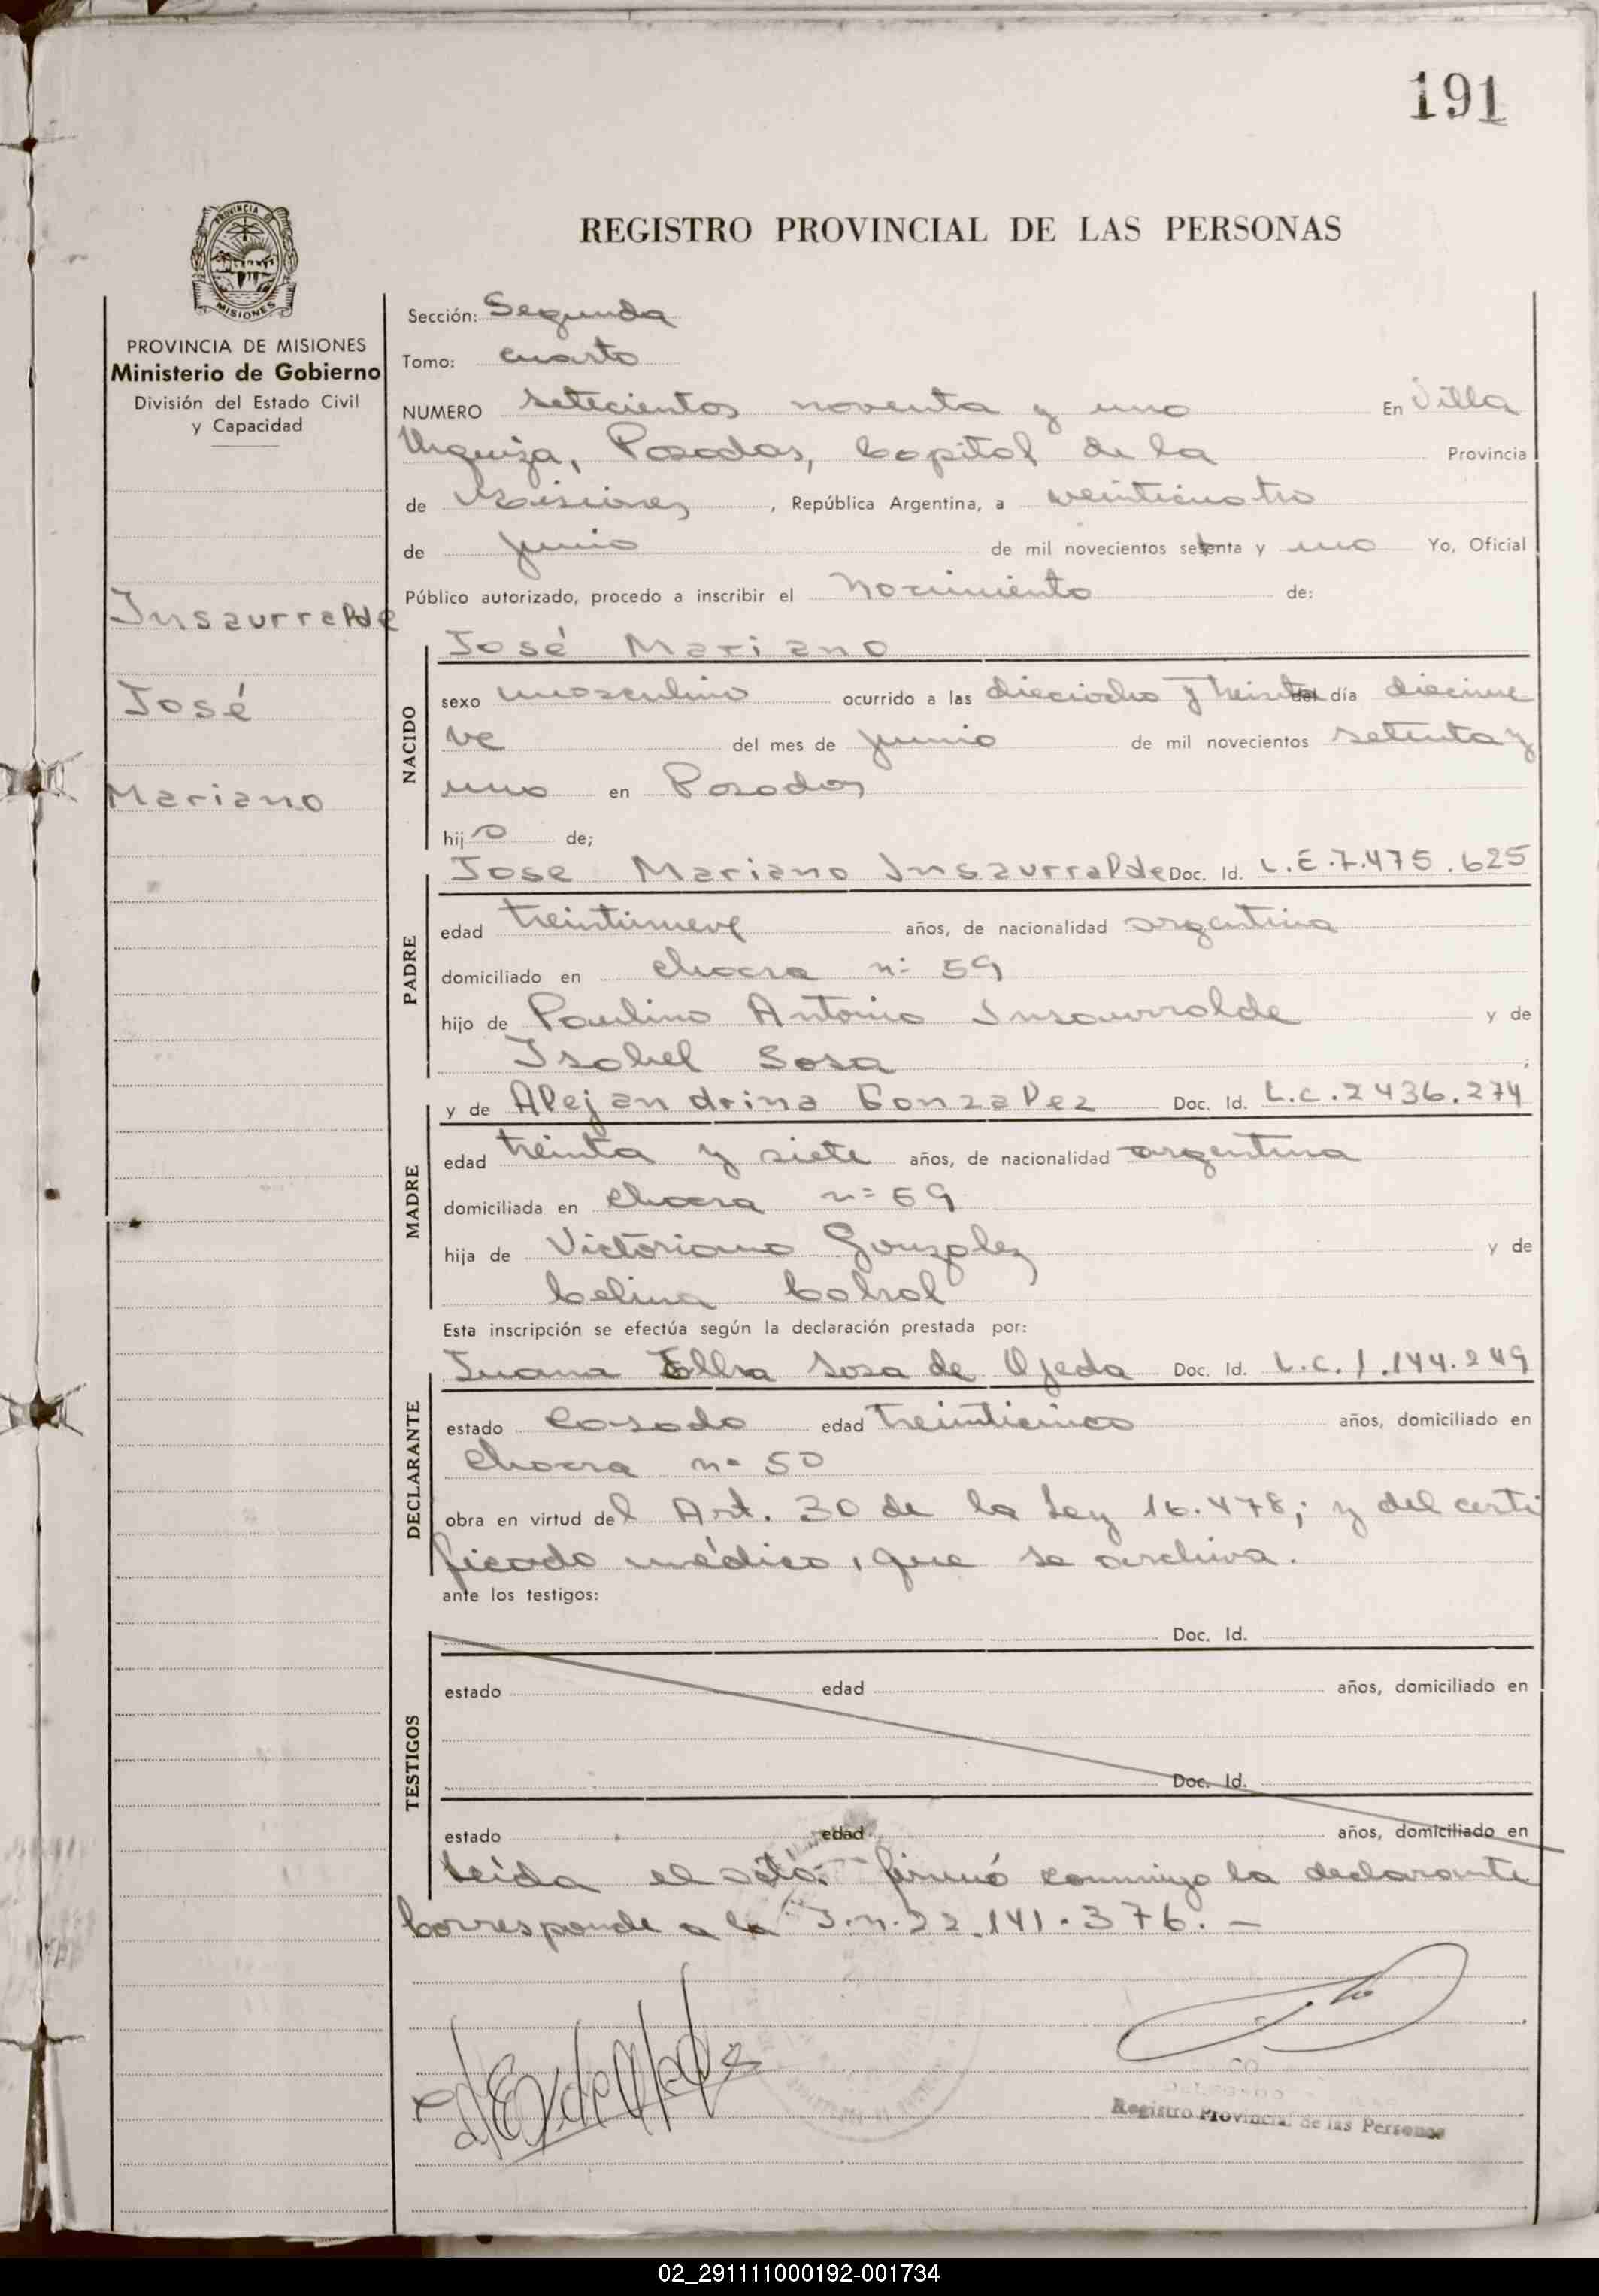 191
REGISTRO PROVINCIAL DE LAS PERSONAS
PROVINCIA DE MISIONES
Ministerio de Gobierno
División del Estado Civil
y Capacidad
Insaurralde
José
Mariano
Sección: Segunda
Tomo: cuarto
NUMERO setecientos noventa y uno En Villa
Urquiza, Posadas, Capital de la Provincia
de Misiones, República Argentina, a veinticuatro
de junio de mil novecientos setenta y uno Yo, Oficial
Público autorizado, procedo a inscribir el nacimiento de:
José Mariano
NACIDO
sexo masculino ocurrido a las dieciocho y treinta del día diecinue
ve del mes de junio de mil novecientos setenta y
uno en Posadas
hijo de;
Jose Mariano Insaurralde Doc. Id. L.E.7.475.625
PADRE
edad treintinueve años, de nacionalidad argentina
domiciliado en chacra nº 59
hijo de Paulino Antonio Insaurralde y de
Isabel Sosa;
y de Alejandrina Gonzalez Doc. Id. L.C.2436.274
MADRE
edad treinta y siete años, de nacionalidad argentina
domiciliada en chacra nº 59
hija de Victoriano Gonzalez y de
Celina Cabral
Esta inscripción se efectúa según la declaración prestada por:
Juana Sosa de Ojeda Doc. Id. L.C.1.144.249
DECLARANTE
estado casada edad treinticinco años, domiciliado en
chacra nº 50
obra en virtud del Art. 30 de la Ley 16.478; y del certi
ficado médico, que se archiva.
ante los testigos:
Doc. Id.
TESTIGOS
estado edad años, domiciliado en
Doc. Id.
estado edad años, domiciliado en
Leída el acta: firmó conmigo la declarante
Corresponde a la I.n.22.141.376.—
Registro Provincial de las Personas
02_291111000192-001734